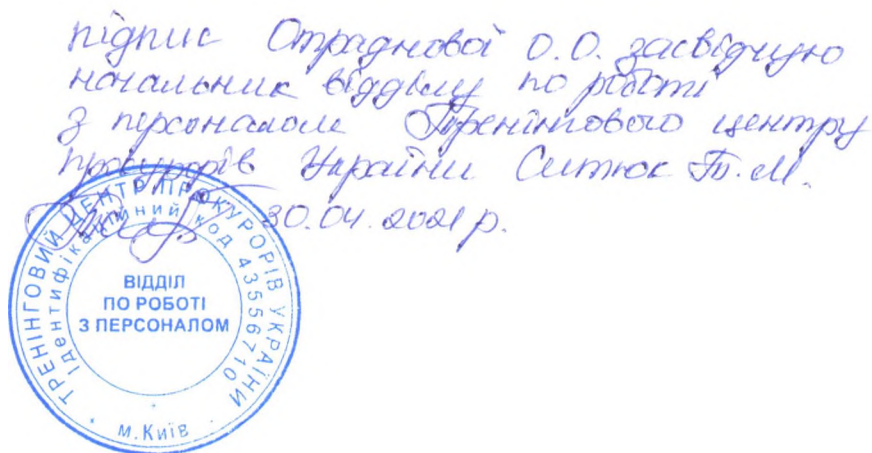 підпис Отраднової О.О. засвідчую
начальник відділу по роботі
з персоналом Тренінгового центру
прокурорів України Ситюк Т.М.
30.04.2021 р.
ТРЕНІНГОВИЙ ЦЕНТР ПРОКУРОРІВ УКРАЇНИ
Ідентифікаційний код 43556710
ВІДДІЛ
ПО РОБОТІ
З ПЕРСОНАЛОМ
* м.Київ *